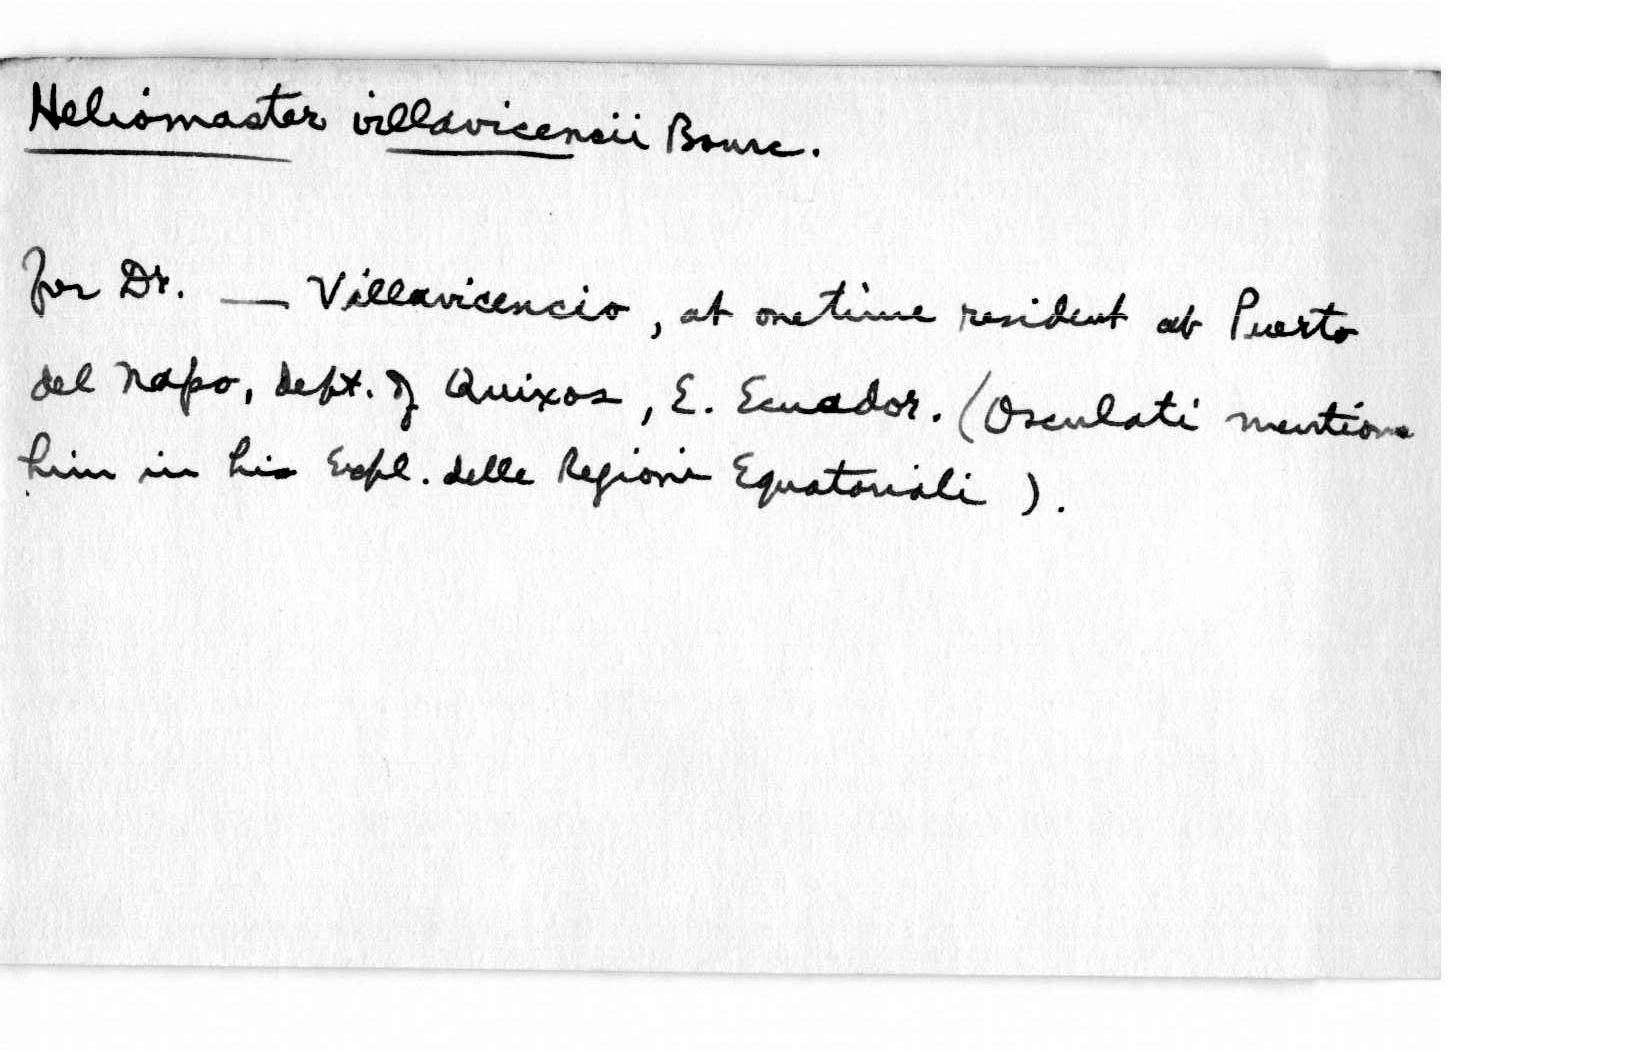 Heliomaster villavicensii Bourc.
for Dr. — Villavicencio, at one time resident at Puerto
del Napo, dept. of Quixos, E. Ecuador. (Osculati mentions
him in his Expl. delle Regioni Equatoriali).